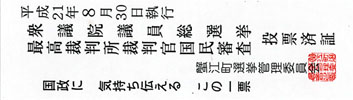 平成21年8月30日執行
衆議院議員総選挙
最高裁判所裁判官国民審査
投票済証
蟹江町選挙管理委員会
国政に 気持ち伝える この一票